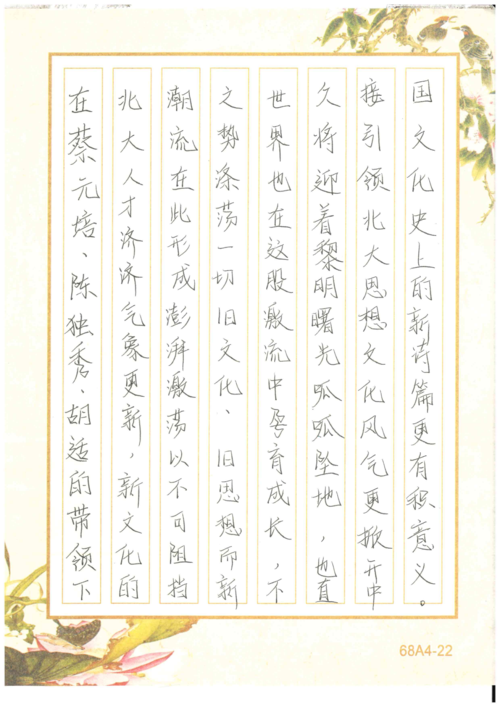 在蔡元培、陈独秀、胡适的带领下
北大人才济济气象更新，新文化的
潮流在此形成澎湃激荡以不可阻挡
之势涤荡一切旧文化、旧思想而新
世界也在这股激流中孕育成长，不
久将迎着黎明曙光呱呱坠地，也直
接引领北大思想文化风气更掀开中
国文化史上的新诗篇更有积意义。
68A4-22